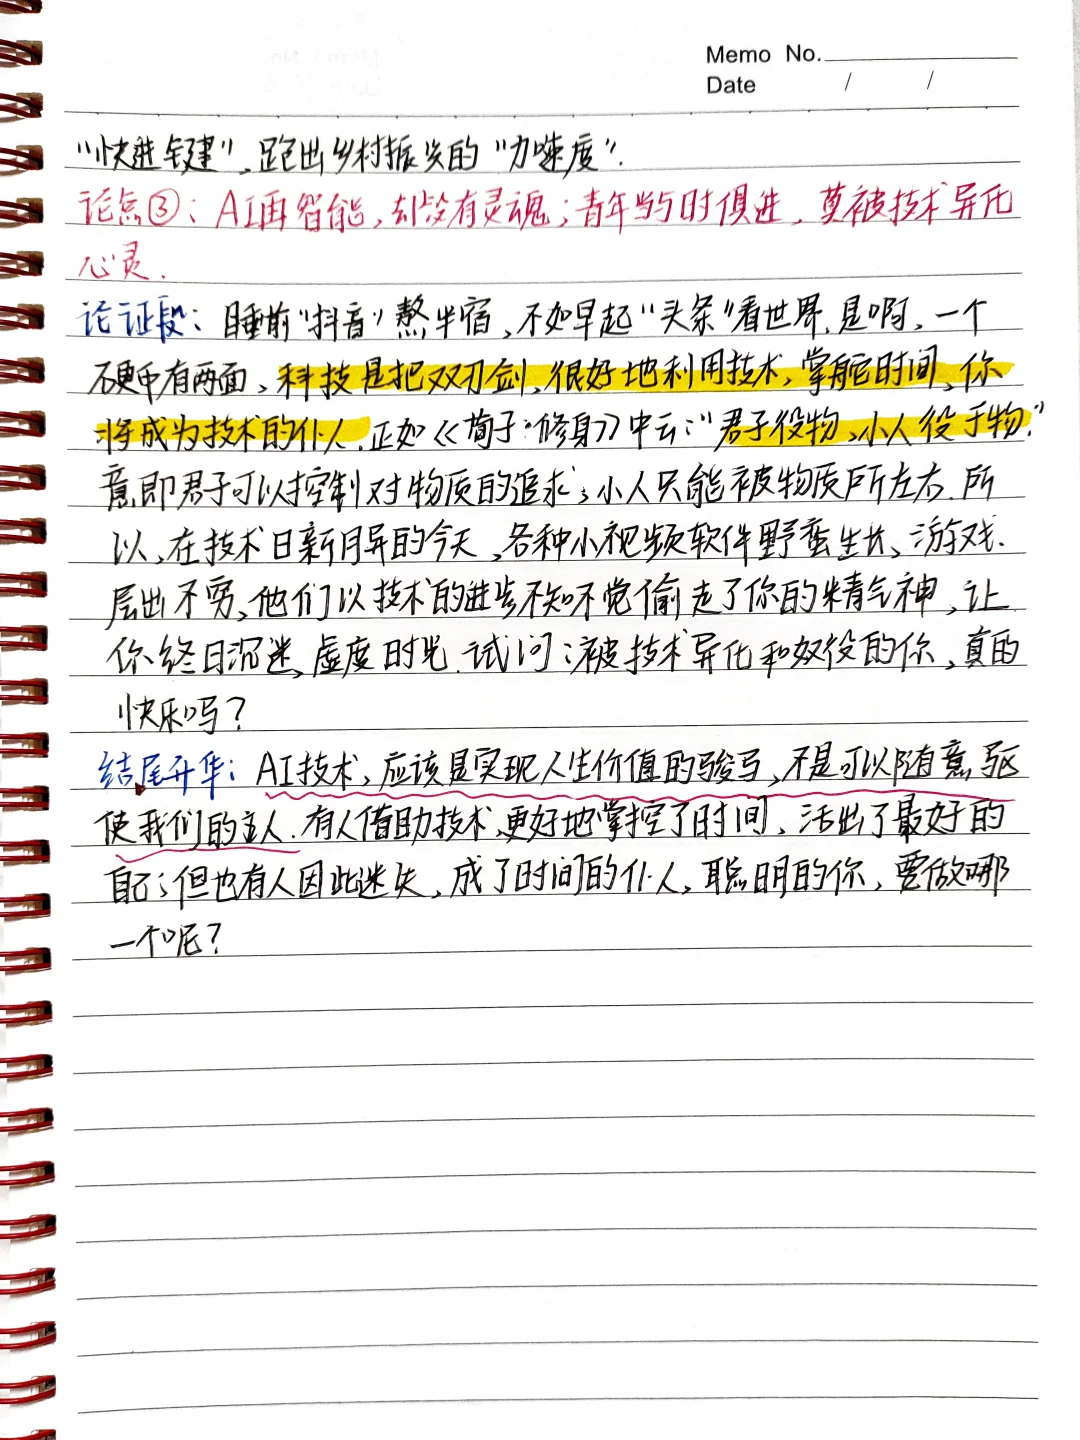 Memo No.
Date / /
"快进键",跑出乡村振兴的"加速度".
论点③:AI再智能,却没有灵魂;青年当与时俱进,莫被技术异化
心灵.
论证段:睡前"抖音"熬半宿,不如早起"头条"看世界.是啊,一个
硬币有两面,科技是把双刃剑,很好地利用技术,掌舵时间,你
将成为技术的仆人.正如《荀子·修身》中云:"君子役物,小人役于物."
意即君子可以控制对物质的追求;小人只能被物质所左右.所
以,在技术日新月异的今天,各种小视频软件野蛮生长,游戏
层出不穷,他们以技术的进步不知不觉偷走了你的精气神,让
你终日沉迷,虚度时光.试问:被技术异化和奴役的你,真的
快乐吗?
结尾升华:AI技术,应该是实现人生价值的骏马,不是可以随意驱
使我们的主人.有人借助技术,更好地掌控了时间,活出了最好的
自己;但也有人因此迷失,成了时间的仆人,聪明的你,要做哪
一个呢?